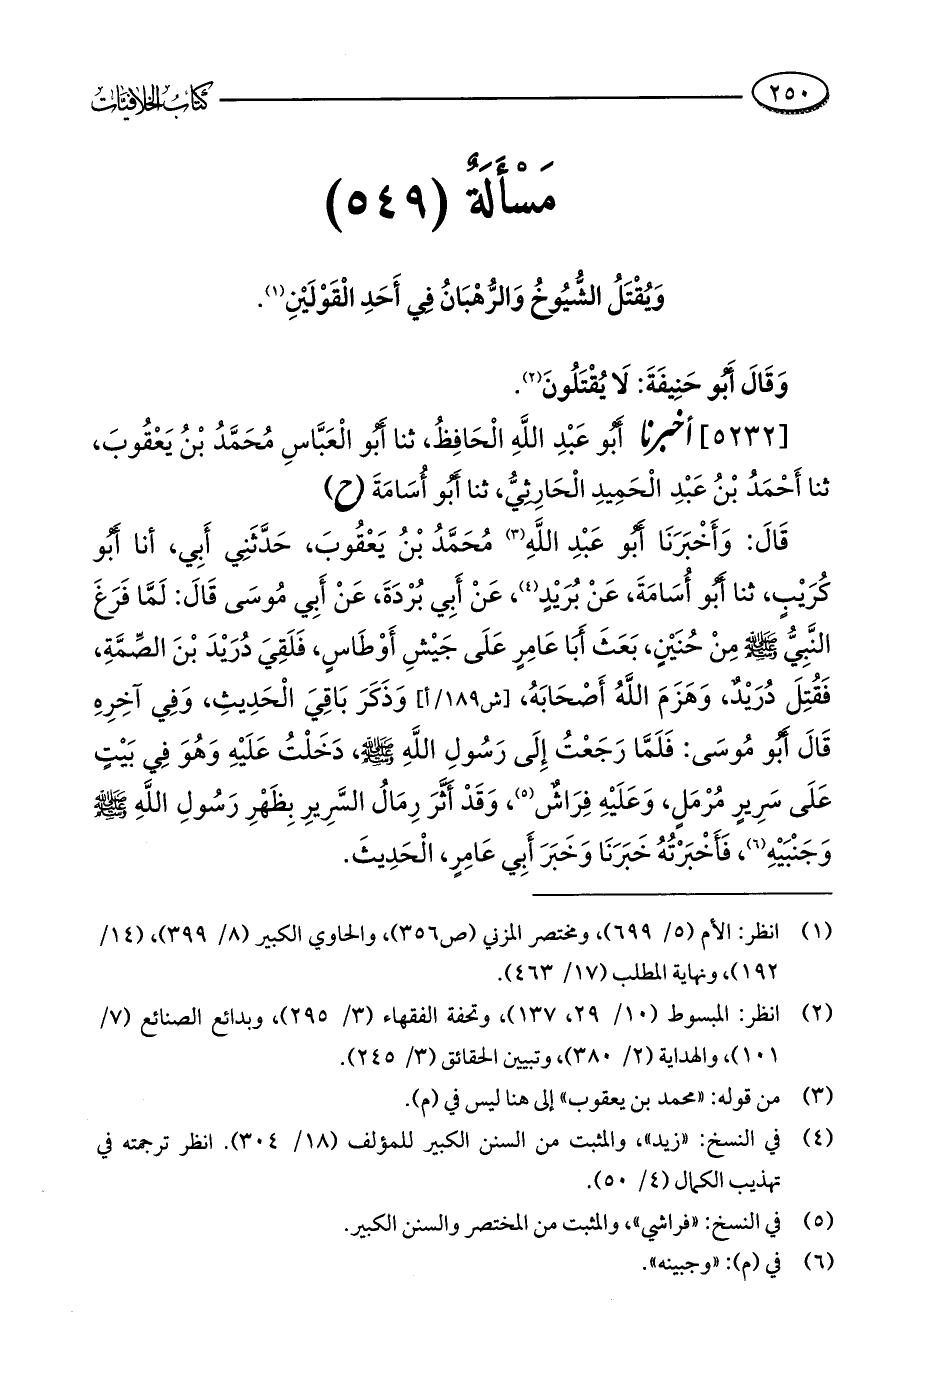 ٢٥٠ كتاب الخلافيات
مَسْأَلَةٌ (٥٤٩)
وَيُقْتَلُ الشُّيُوخُ وَالرُّهْبَانُ فِي أَحَدِ الْقَوْلَيْنِ(١).
وَقَالَ أَبُو حَنِيفَةَ: لَا يُقْتَلُونَ(٢).
[٥٢٣٢] أخبرنا أَبُو عَبْدِ اللَّهِ الْحَافِظُ، ثنا أَبُو الْعَبَّاسِ مُحَمَّدُ بْنُ يَعْقُوبَ،
ثنا أَحْمَدُ بْنُ عَبْدِ الْحَمِيدِ الْحَارِثِيُّ، ثنا أَبُو أُسَامَةَ (ح)
قَالَ: وَأَخْبَرَنَا أَبُو عَبْدِ اللَّهِ(٣) مُحَمَّدُ بْنُ يَعْقُوبَ، حَدَّثَنِي أَبِي، أنا أَبُو
كُرَيْبٍ، ثنا أَبُو أُسَامَةَ، عَنْ بُرَيْدٍ(٤)، عَنْ أَبِي بُرْدَةَ، عَنْ أَبِي مُوسَى قَالَ: لَمَّا فَرَغَ
النَّبِيُّ ﷺ مِنْ حُنَيْنٍ، بَعَثَ أَبَا عَامِرٍ عَلَى جَيْشِ أَوْطَاسٍ، فَلَقِيَ دُرَيْدَ بْنَ الصِّمَّةِ،
فَقُتِلَ دُرَيْدٌ، وَهَزَمَ اللَّهُ أَصْحَابَهُ، [ش١٨٩/أ] وَذَكَرَ بَاقِيَ الْحَدِيثِ، وَفِي آخِرِهِ
قَالَ أَبُو مُوسَى: فَلَمَّا رَجَعْتُ إِلَى رَسُولِ اللَّهِ ﷺ، دَخَلْتُ عَلَيْهِ وَهُوَ فِي بَيْتٍ
عَلَى سَرِيرٍ مُرْمَلٍ، وَعَلَيْهِ فِرَاشٌ(٥)، وَقَدْ أَثَّرَ رِمَالُ السَّرِيرِ بِظَهْرِ رَسُولِ اللَّهِ ﷺ
وَجَنْبَيْهِ(٦)، فَأَخْبَرْتُهُ خَبَرَنَا وَخَبَرَ أَبِي عَامِرٍ، الْحَدِيثَ.
(١) انظر: الأم (٥/ ٦٩٩)، ومختصر المزني (ص٣٥٦)، والحاوي الكبير (٨/ ٣٩٩)، (١٤/
١٩٢)، ونهاية المطلب (١٧/ ٤٦٣).
(٢) انظر: المبسوط (١٠/ ٢٩، ١٣٧)، وتحفة الفقهاء (٣/ ٢٩٥)، وبدائع الصنائع (٧/
١٠١)، والهداية (٢/ ٣٨٠)، وتبيين الحقائق (٣/ ٢٤٥).
(٣) من قوله: «محمد بن يعقوب» إلى هنا ليس في (م).
(٤) في النسخ: «زيد»، والمثبت من السنن الكبير للمؤلف (١٨/ ٣٠٤). انظر ترجمته في
تهذيب الكمال (٤/ ٥٠).
(٥) في النسخ: «فراشي»، والمثبت من المختصر والسنن الكبير.
(٦) في (م): «وجبينه».